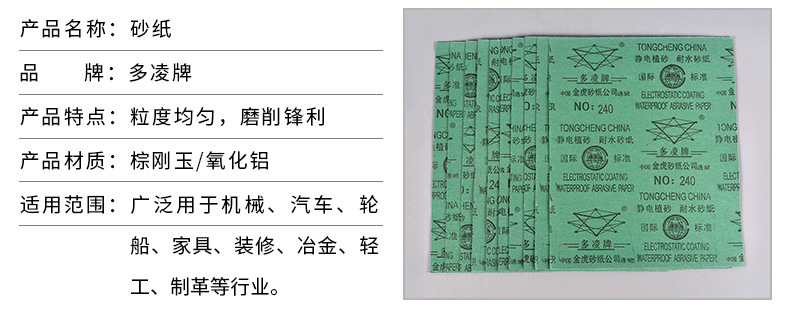 产品名称：砂纸
品 牌：多凌牌
产品特点：粒度均匀，磨削锋利
产品材质：棕刚玉/氧化铝
适用范围：广泛用于机械、汽车、轮
船、家具、装修、冶金、轻
工、制革等行业。
TONGCHENG CHINA
静电植砂 耐水砂纸
多凌牌
国际 标准
中国 金虎砂纸公司 通城
ELECTROSTATIC COATING
WATERPROOF ABRASIVE PAPER
NO: 240
TONGCHENG CHINA
静电植砂 耐水砂纸
国际 标准
多凌牌
ELECTROSTATIC COATING
WATERPROOF ABRASIVE PAPER
中国 金虎砂纸公司 通城
NO: 240
TONGCHENG CHINA
静电植砂 耐水砂纸
多凌牌
国际 标准
中国 金虎砂纸公司 通城
ELECTROSTATIC COATING
WATERPROOF ABRASIVE PAPER